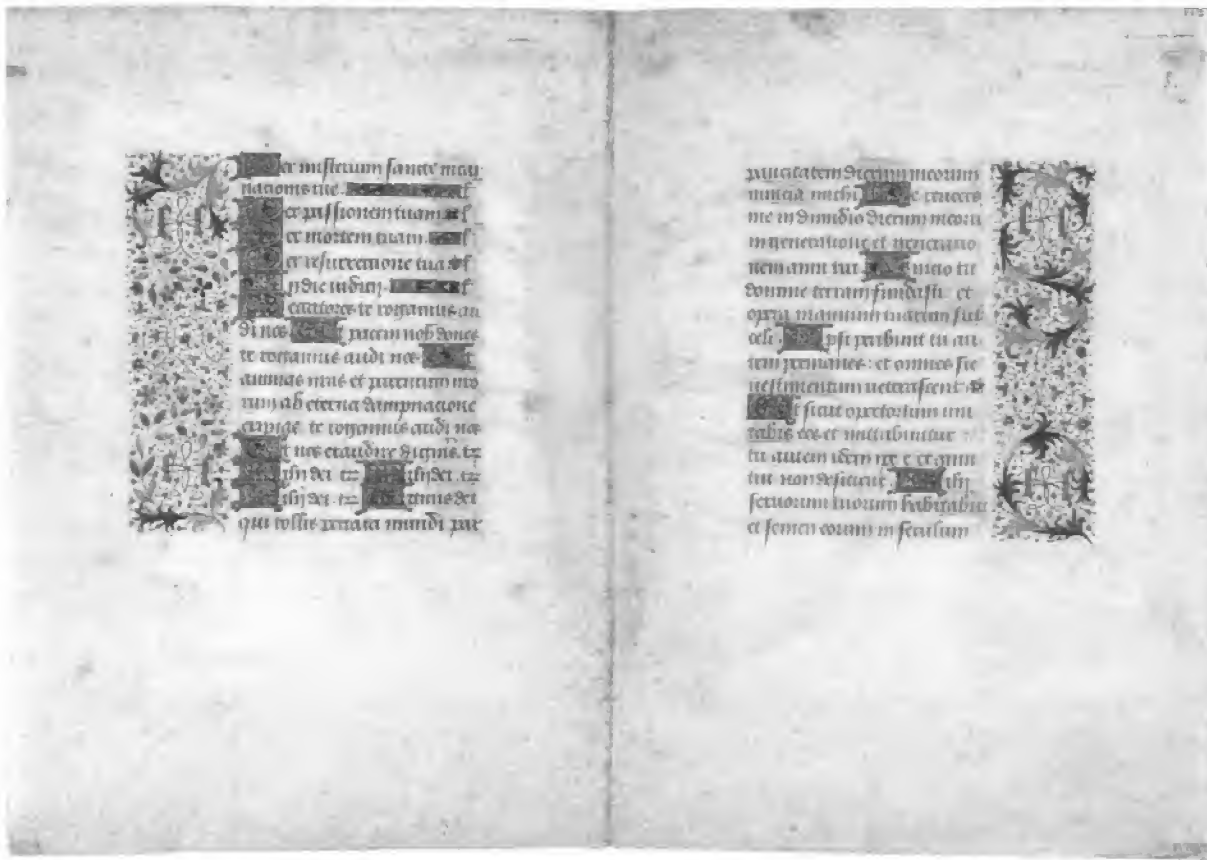 Per misterium sancte incar
nacionis tue. f
Per passionem tuam f
Per mortem tuam f
Per resurrectione tua f
In die iudicij. f
Peccatores te rogamus au
di nos Ut pacem nob dones
te rogamus audi nos Ut
animas nras et parentum nro
rum ab eterna dampnacione
eripias te rogamus audi nos
Ut nos exaudire digneris. te
fili dei. te fili dei. te
fili dei. te Agnus dei
qui tollis peccata mundi par
paucitatem dierum meorum
nuncia michi Ne revoces
me in dimidio dierum meoru
in generatione et generatio
nem anni tui Inicio tu
domine terram fundasti: et
opera manuum tuarum sūt
celi. Ipsi peribunt tu au
tem permanes: et omnes sic
vestimentum veterascent
Et sicut opertorium mu
tabis eos et mutabuntur
tu autem idem ipse es et anni
tui non deficient. Filij
servorum tuorum habitabūt
et semen eorum in seculum